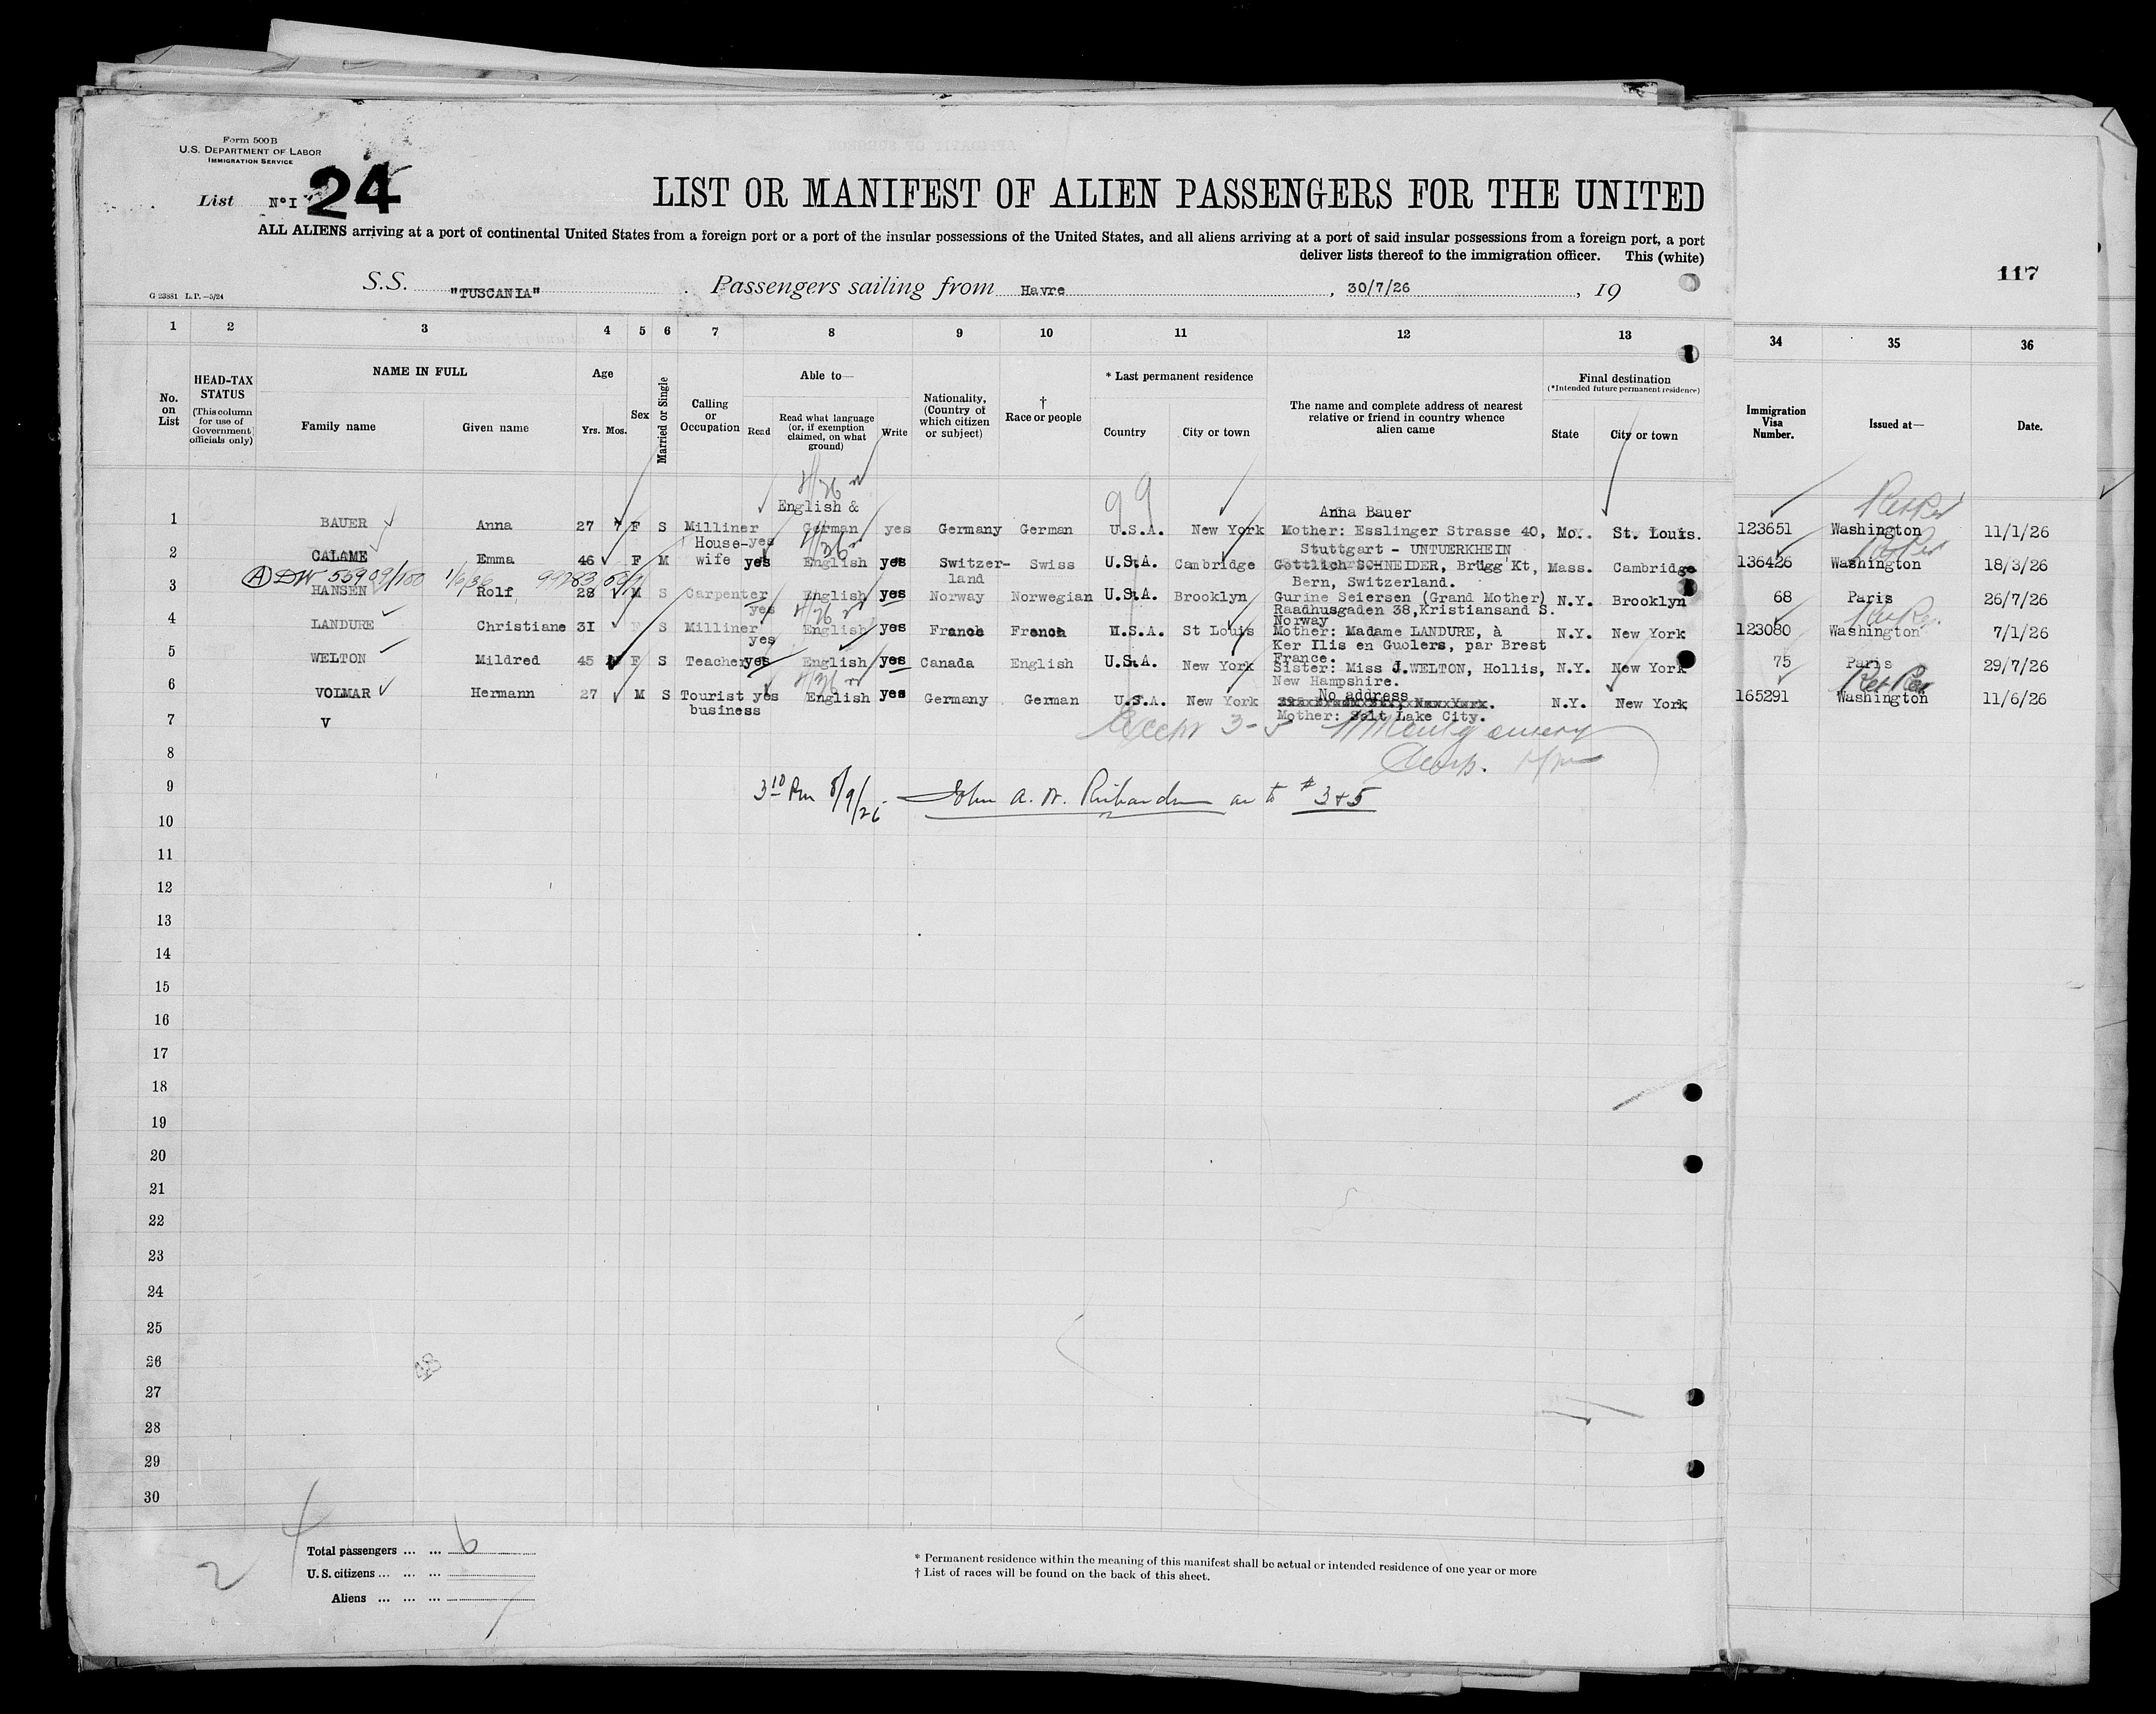 Form 500 B
U.S. DEPARTMENT OF LABOR
IMMIGRATION SERVICE
List N°I 24
LIST OR MANIFEST OF ALIEN PASSENGERS FOR THE UNITED
ALL ALIENS arriving at a port of continental United States from a foreign port or a port of the insular possessions of the United States, and all aliens arriving at a port of said insular possessions from a foreign port, a port
deliver lists thereof to the immigration officer. This (white)
117
G 23881 L.P.—5/24
S.S. "TUSCANIA" Passengers sailing from Havre, 30/7/26, 19
1 2 3 4 5 6 7 8 9 10 11 12 13 34 35 36
No. on List
HEAD-TAX STATUS (This column for use of Government officials only)
NAME IN FULL Family name Given name
Age Yrs. Mos.
Sex
Married or Single
Calling or Occupation
Able to— Read Read what language (or, if exemption claimed, on what ground) Write
Nationality, (Country of which citizen or subject)
† Race or people
* Last permanent residence Country City or town
The name and complete address of nearest relative or friend in country whence alien came
Final destination (*Intended future permanent residence) State City or town
Immigration Visa Number.
Issued at—
Date.
1 BAUER Anna 27 F S Milliner yes English & German yes Germany German U.S.A. New York Anna Bauer Mother: Esslinger Strasse 40, Stuttgart - UNTUERKHEIN Mo. St. Louis. 123651 Washington 11/1/26
2 CALAME Emma 46 F M House-wife yes English yes Switzer-land Swiss U.S.A. Cambridge Gottlich SCHNEIDER, Brügg Kt, Bern, Switzerland. Mass. Cambridge 136426 Washington 18/3/26
3 HANSEN Rolf 28 M S Carpenter yes English yes Norway Norwegian U.S.A. Brooklyn Gurine Seiersen (Grand Mother) Raadhusgaden 38, Kristiansand S. Norway N.Y. Brooklyn 68 Paris 26/7/26
4 LANDURE Christiane 3I F S Milliner yes English yes France French U.S.A. St Louis Mother: Madame LANDURE, à Ker Ilis en Guolers, par Brest France. N.Y. New York 123080 Washington 7/1/26
5 WELTON Mildred 45 F S Teacher yes English yes Canada English U.S.A. New York Sister: Miss J.WELTON, Hollis, New Hampshire. N.Y. New York 75 Paris 29/7/26
6 VOLMAR Hermann 27 M S Tourist business yes English yes Germany German U.S.A. New York No address Mother: Salt Lake City. N.Y. New York 165291 Washington 11/6/26
7 V
8
3 10 Pm 8/9/26 — John A. W. Richardson as to # 3 & 5
9
10
11
12
13
14
15
16
17
18
19
20
21
22
23
24
25
26
27
28
29
30
2 4
Total passengers ... ... 6
U.S. citizens ... ... ...
Aliens ... ... ...
* Permanent residence within the meaning of this manifest shall be actual or intended residence of one year or more
† List of races will be found on the back of this sheet.